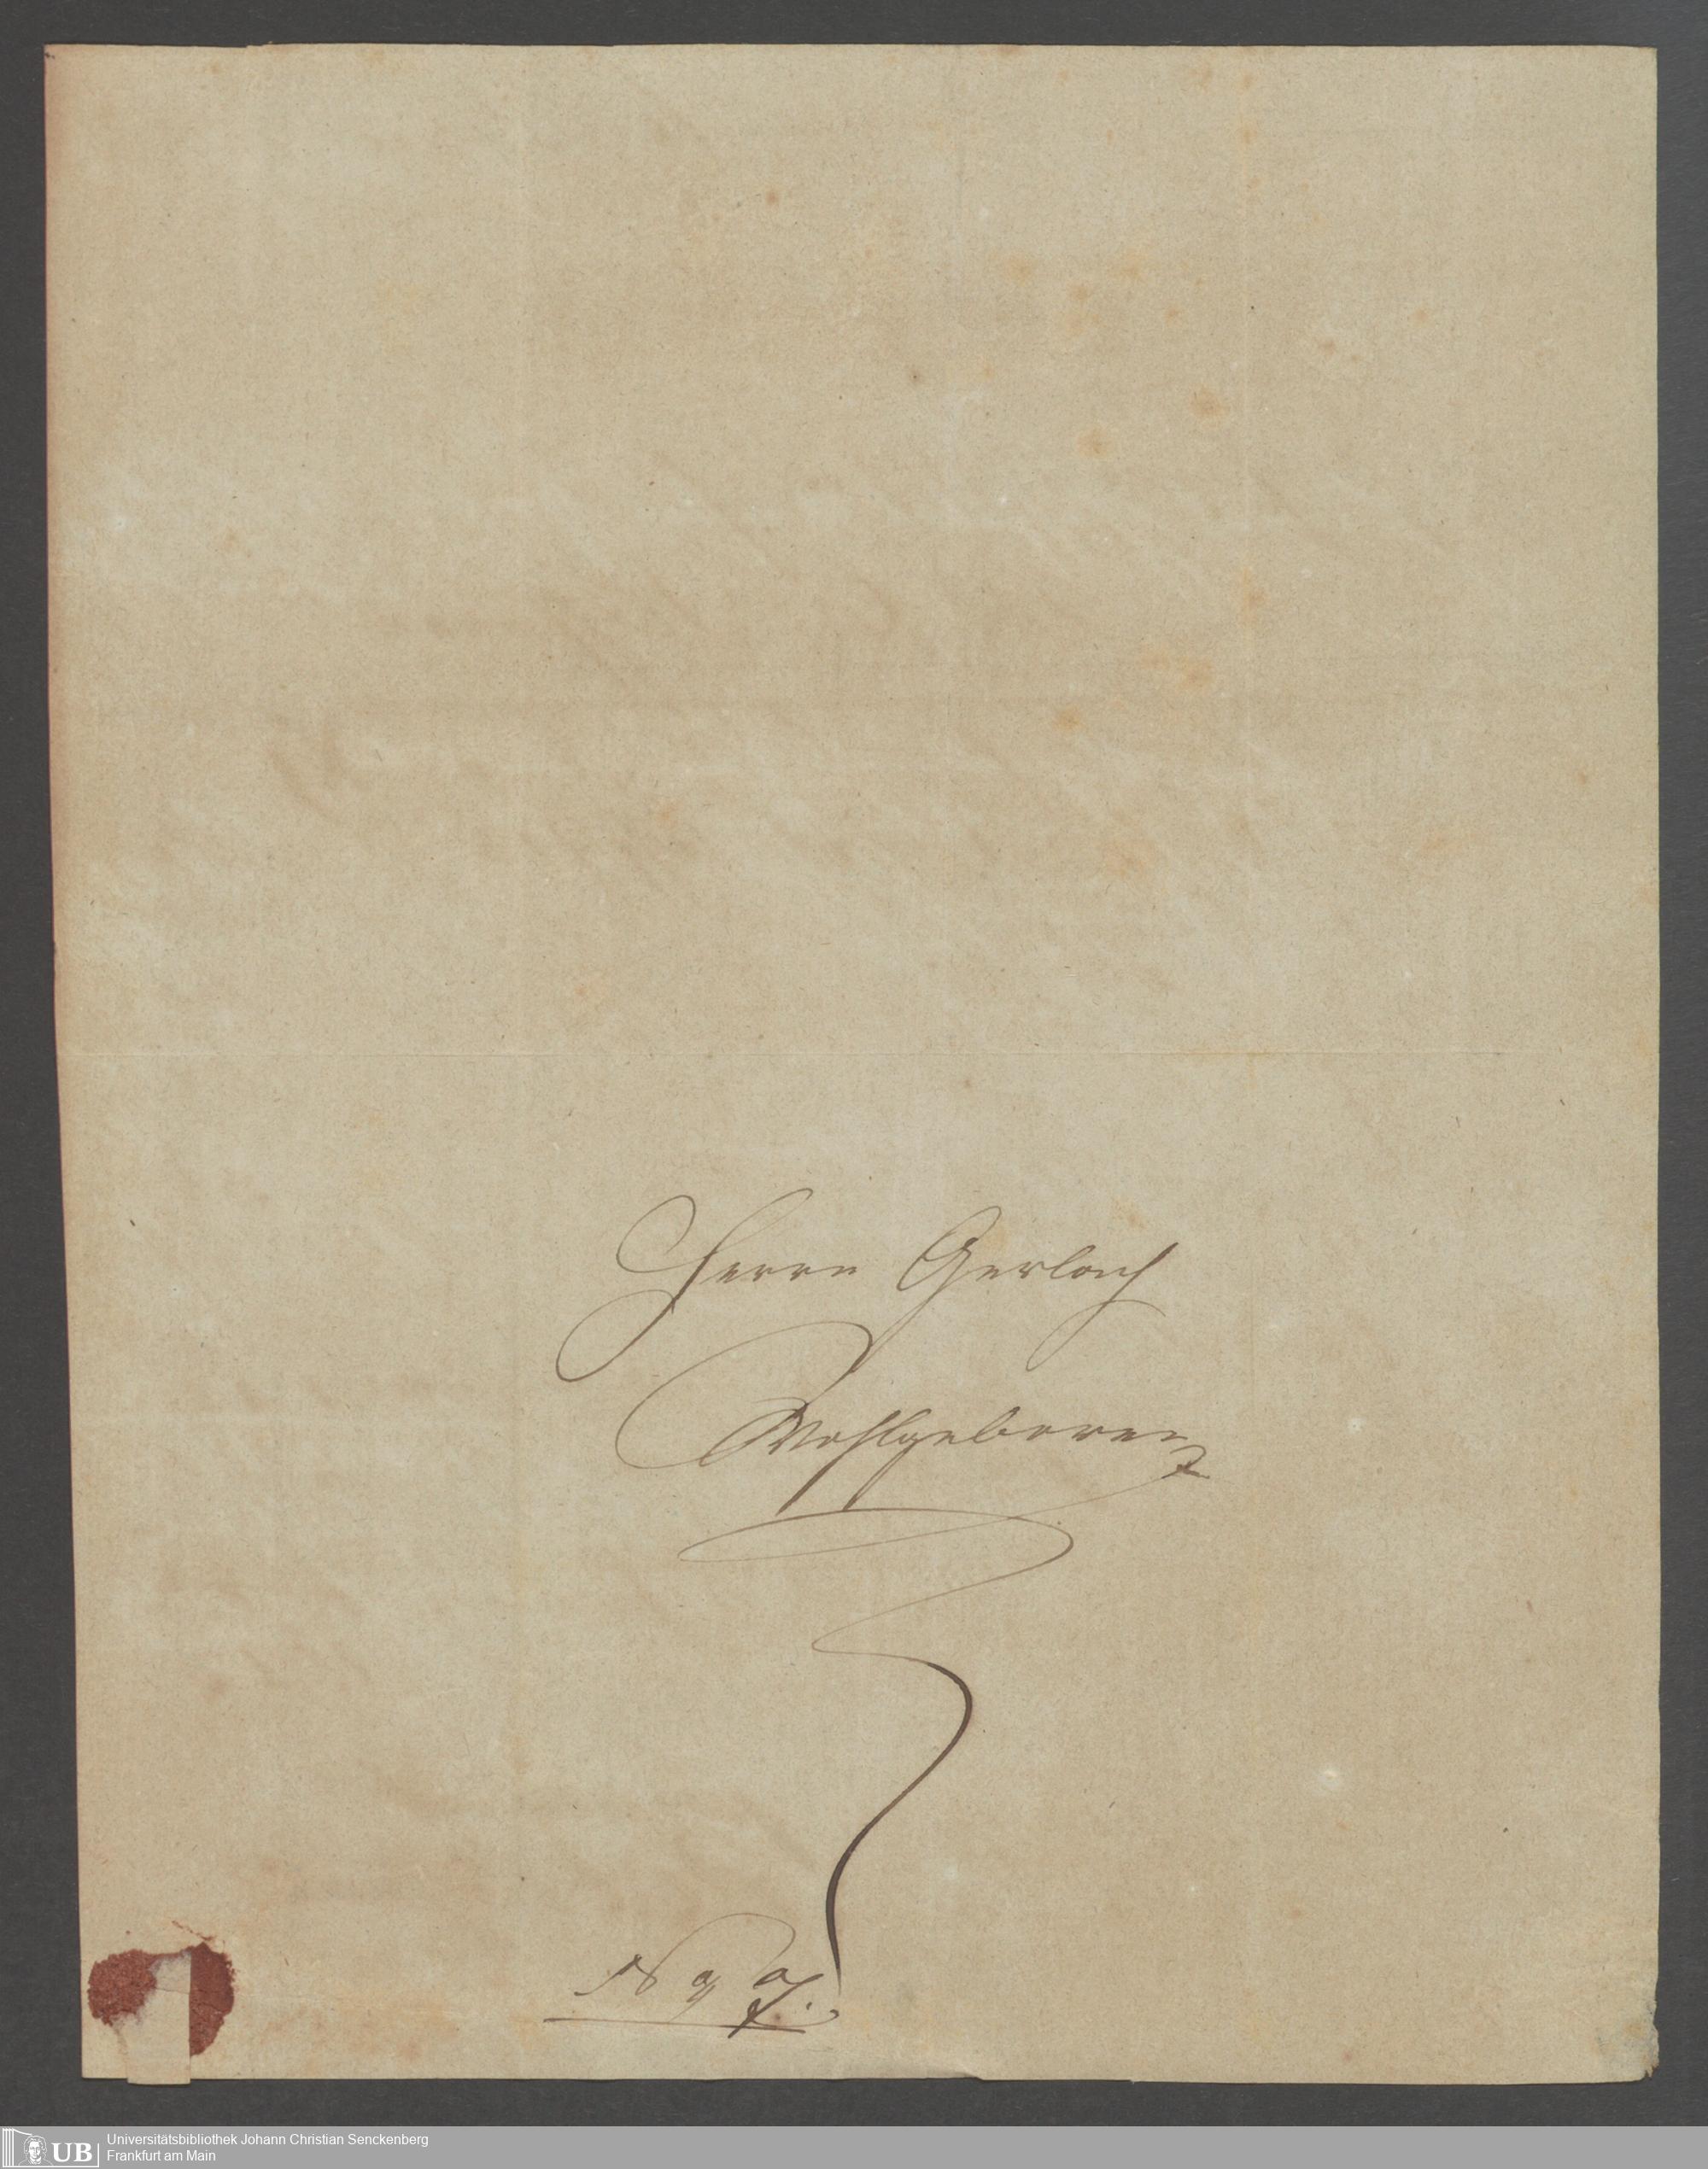 Herrn Gerlach
Wohlgeboren
UB
Universitätsbibliothek Johann Christian Senckenberg
Frankfurt am Main